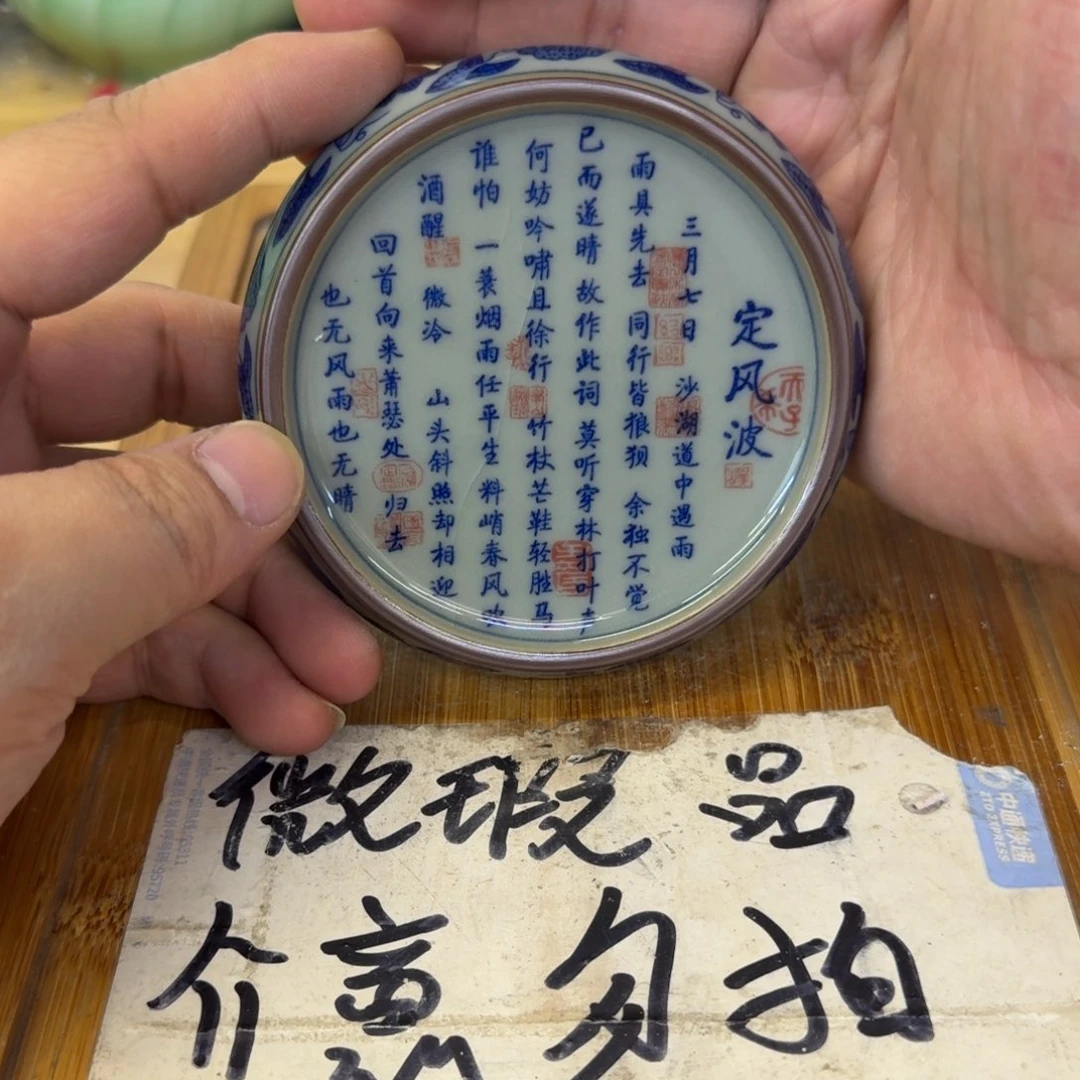 定风波
三月七日 沙湖道中遇雨
雨具先去 同行皆狼狈 余独不觉
已而遂晴 故作此词 莫听穿林打叶声
何妨吟啸且徐行 竹杖芒鞋轻胜马
谁怕 一蓑烟雨任平生 料峭春风吹
酒醒 微冷 山头斜照却相迎
回首向来萧瑟处 归去
也无风雨也无晴
微瑕品
介意勿拍
中通快递
ZTO EXPRESS
95720